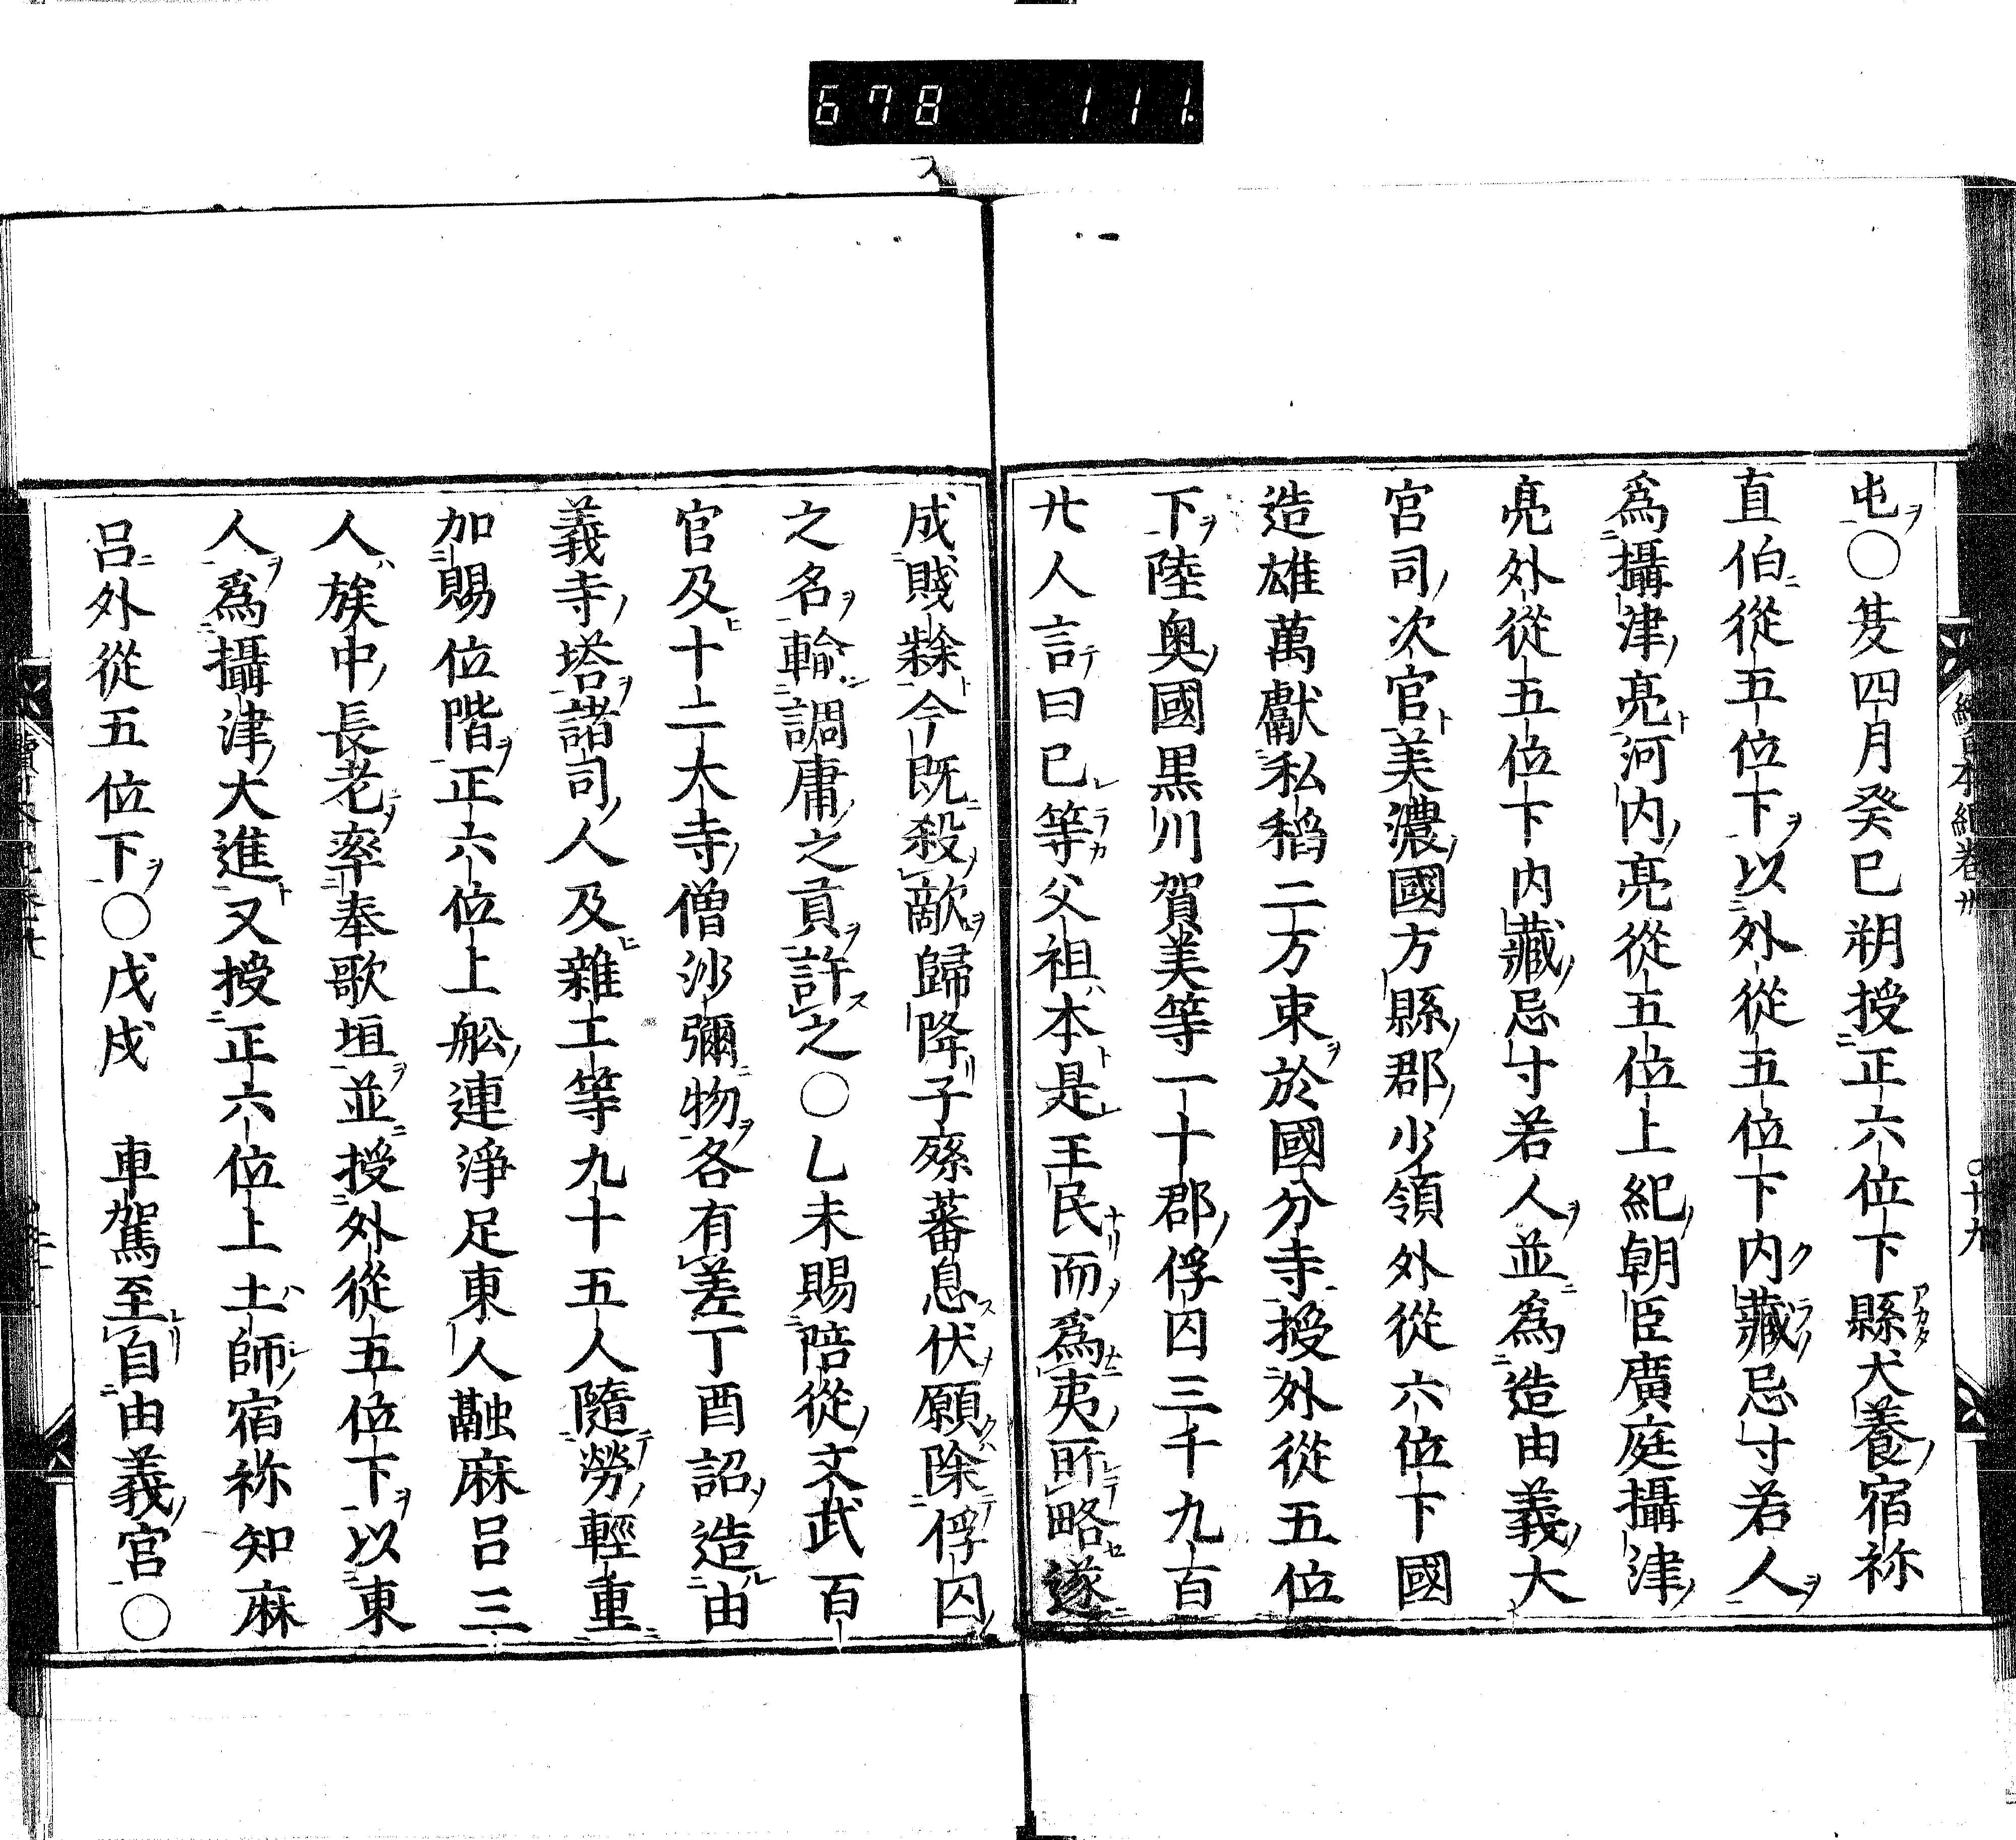 678 111
屯○夏四月癸巳朔授正六位下縣犬養宿祢
直伯從五位下以外從五位下内藏忌寸若人
爲攝津亮河内亮從五位上紀朝臣廣庭攝津
亮外從五位下内藏忌寸若人並爲造由義大
宮司次官美濃國方縣郡少領外從六位下國
造雄萬獻私稻二万束於國分寺授外從五位
下陸奥國黒川賀美等一十郡俘囚三千九百
廿人言曰已等父祖本是王民而爲夷所略遂
成賤隸今既殺敵歸降子孫蕃息伏願除俘囚
之名輸調庸之貢許之○乙未賜陪從文武百
官及十二大寺僧沙彌物各有差丁酉詔造由
義寺塔諸司人及雜工等九十五人隨勞輕重
加賜位階正六位上舩連淨足東人虫麻呂三
人族中長老率奉歌垣並授外從五位下以東
人爲攝津大進又授正六位上土師宿祢知麻
呂外從五位下○戊戌 車駕至自由義宮○
續日本紀卷卅
○十九